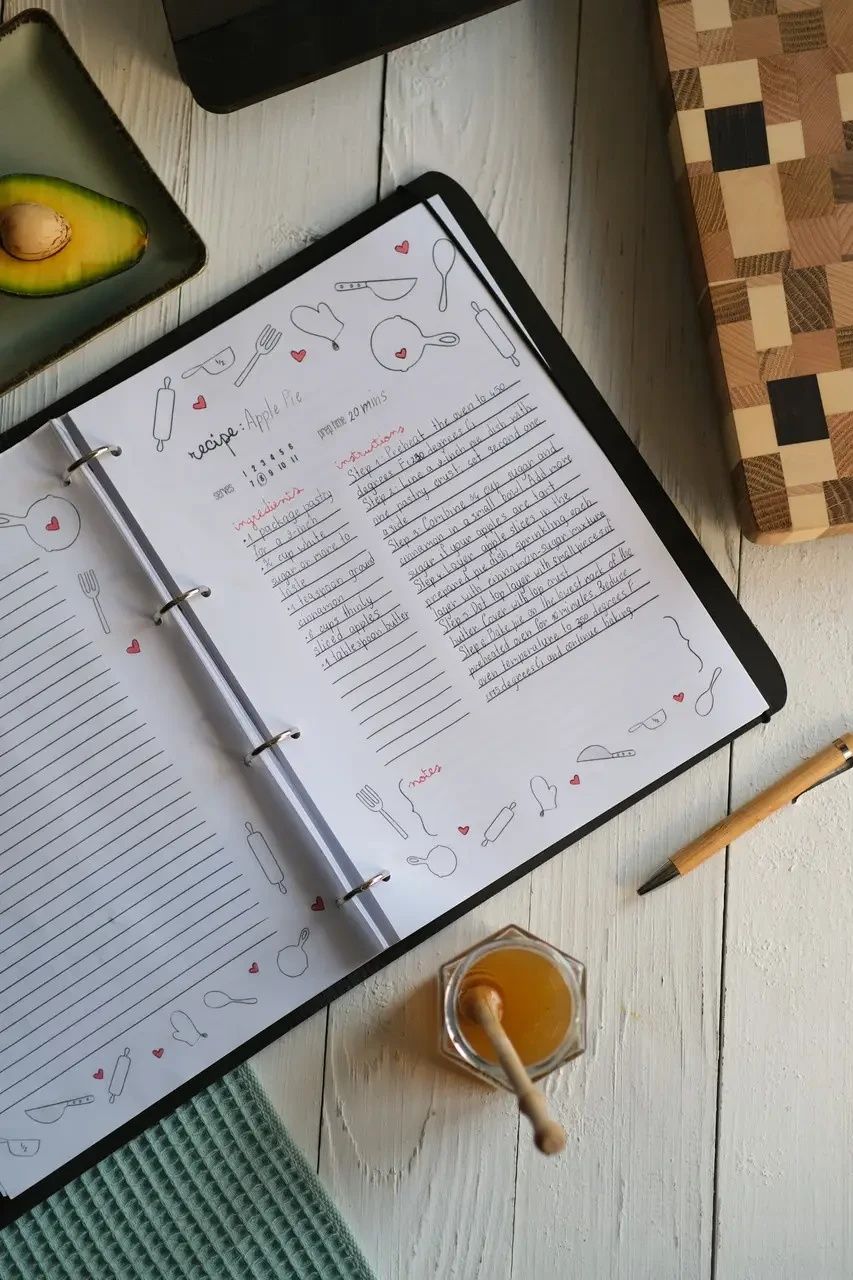 recipe: Apple Pie
prep time 20 mins
serves
1 2 3 4 5 6
7 8 9 10 11
ingredients
• 1 package pastry
for a 9 inch
¾ cup white
sugar or more to
taste
• 1 teaspoon ground
cinnamon
• 6 cups thinly
sliced apples
• 1 tablespoon butter
instructions
Step 1: Preheat the oven to 450
degrees F (230 degrees C)
Step 2: Line a 9 inch pie dish with
one pastry crust. set second one
aside
Step 3: Combine ¾ cup sugar and
cinnamon in a small bowl. Add more
sugar if your apples are tart
Step 4: Layer apple slices in the
prepared pie dish, sprinkling each
layer with cinnamon-sugar mixture
Step 5: Dot top layer with small pieces of
butter. Cover with top crust
Step 6: Bake pie on the lowest rack of the
preheated oven for 10 minutes. Reduce
oven temperature to 350 degrees F
(175 degrees C) and continue baking
notes
½
½
½